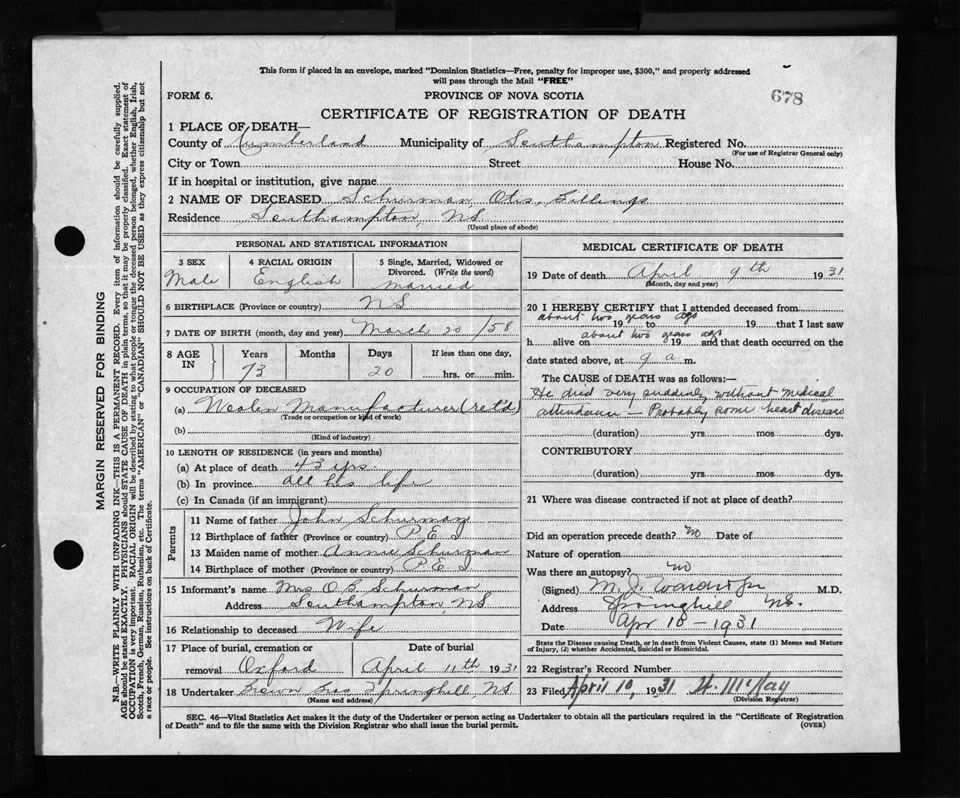 This form if placed in an envelope, marked "Dominion Statistics—Free, penalty for improper use, $300," and properly addressed
will pass through the Mail "FREE"
FORM 6. PROVINCE OF NOVA SCOTIA 678
CERTIFICATE OF REGISTRATION OF DEATH
1 PLACE OF DEATH—
County of Cumberland Municipality of Southampton Registered No.
(For use of Registrar General only)
City or Town Street House No.
If in hospital or institution, give name
2 NAME OF DECEASED Schurman, Otis, Billings
Residence Southampton, NS
(Usual place of abode)
PERSONAL AND STATISTICAL INFORMATION
3 SEX 4 RACIAL ORIGIN 5 Single, Married, Widowed or
Divorced. (Write the word)
Male English married
6 BIRTHPLACE (Province or country) NS
7 DATE OF BIRTH (month, day and year) March 20 /58
8 AGE IN Years Months Days If less than one day,
73 20 hrs. or min.
9 OCCUPATION OF DECEASED
(a) Woolen Manufacturer (ret'd)
(Trade or occupation or kind of work)
(b)
(Kind of industry)
10 LENGTH OF RESIDENCE (in years and months)
(a) At place of death 43 yrs.
(b) In province all his life
(c) In Canada (if an immigrant)
Parents
11 Name of father John Schurman
12 Birthplace of father (Province or country) P E I
13 Maiden name of mother Annie Schurman
14 Birthplace of mother (Province or country) P E I
15 Informant's name Mrs O B Schurman
Address Southampton NS
16 Relationship to deceased Wife
17 Place of burial, cremation or Date of burial
removal Oxford April 11th 1931
18 Undertaker Brown Springhill NS
(Name and address)
MEDICAL CERTIFICATE OF DEATH
19 Date of death April 9th 1931
(Month, day and year)
20 I HEREBY CERTIFY that I attended deceased from
about two years ago
19 to 19 that I last saw
about two years ago
h alive on 19 and that death occurred on the
date stated above, at 9 a m.
The CAUSE of DEATH was as follows:—
He died very suddenly without medical
attendance — Probably some heart disease
(duration) yrs mos dys.
CONTRIBUTORY
(duration) yrs. mos. dys.
21 Where was disease contracted if not at place of death?
Did an operation precede death? no Date of
Nature of operation
Was there an autopsy? no
(Signed) M. J. M.D.
Address Springhill NS.
Date Apr 10 - 1931
State the Disease causing Death, or in death from Violent Causes, state (1) Means and Nature
of Injury, (2) whether Accidental, Suicidal or Homicidal.
22 Registrar's Record Number
23 Filed April 10, 1931 McKay
(Division Registrar)
SEC. 46—Vital Statistics Act makes it the duty of the Undertaker or person acting as Undertaker to obtain all the particulars required in the "Certificate of Registration
of Death" and to file the same with the Division Registrar who shall issue the burial permit. (OVER)
MARGIN RESERVED FOR BINDING
N.B.—WRITE PLAINLY WITH UNFADING INK—THIS IS A PERMANENT RECORD. Every item of information should be carefully supplied.
AGE should be stated EXACTLY. PHYSICIANS should STATE CAUSE OF DEATH in plain terms, so that it may be properly classified. Exact statement of
OCCUPATION is very important. RACIAL ORIGIN will be described by stating to what people or tongue the deceased person belonged, whether English, Irish,
Scotch, French, German, Russian, Ruthenian, etc. The terms "AMERICAN" or "CANADIAN" SHOULD NOT BE USED as they express citizenship but not
a race or people. See instructions on back of Certificate.